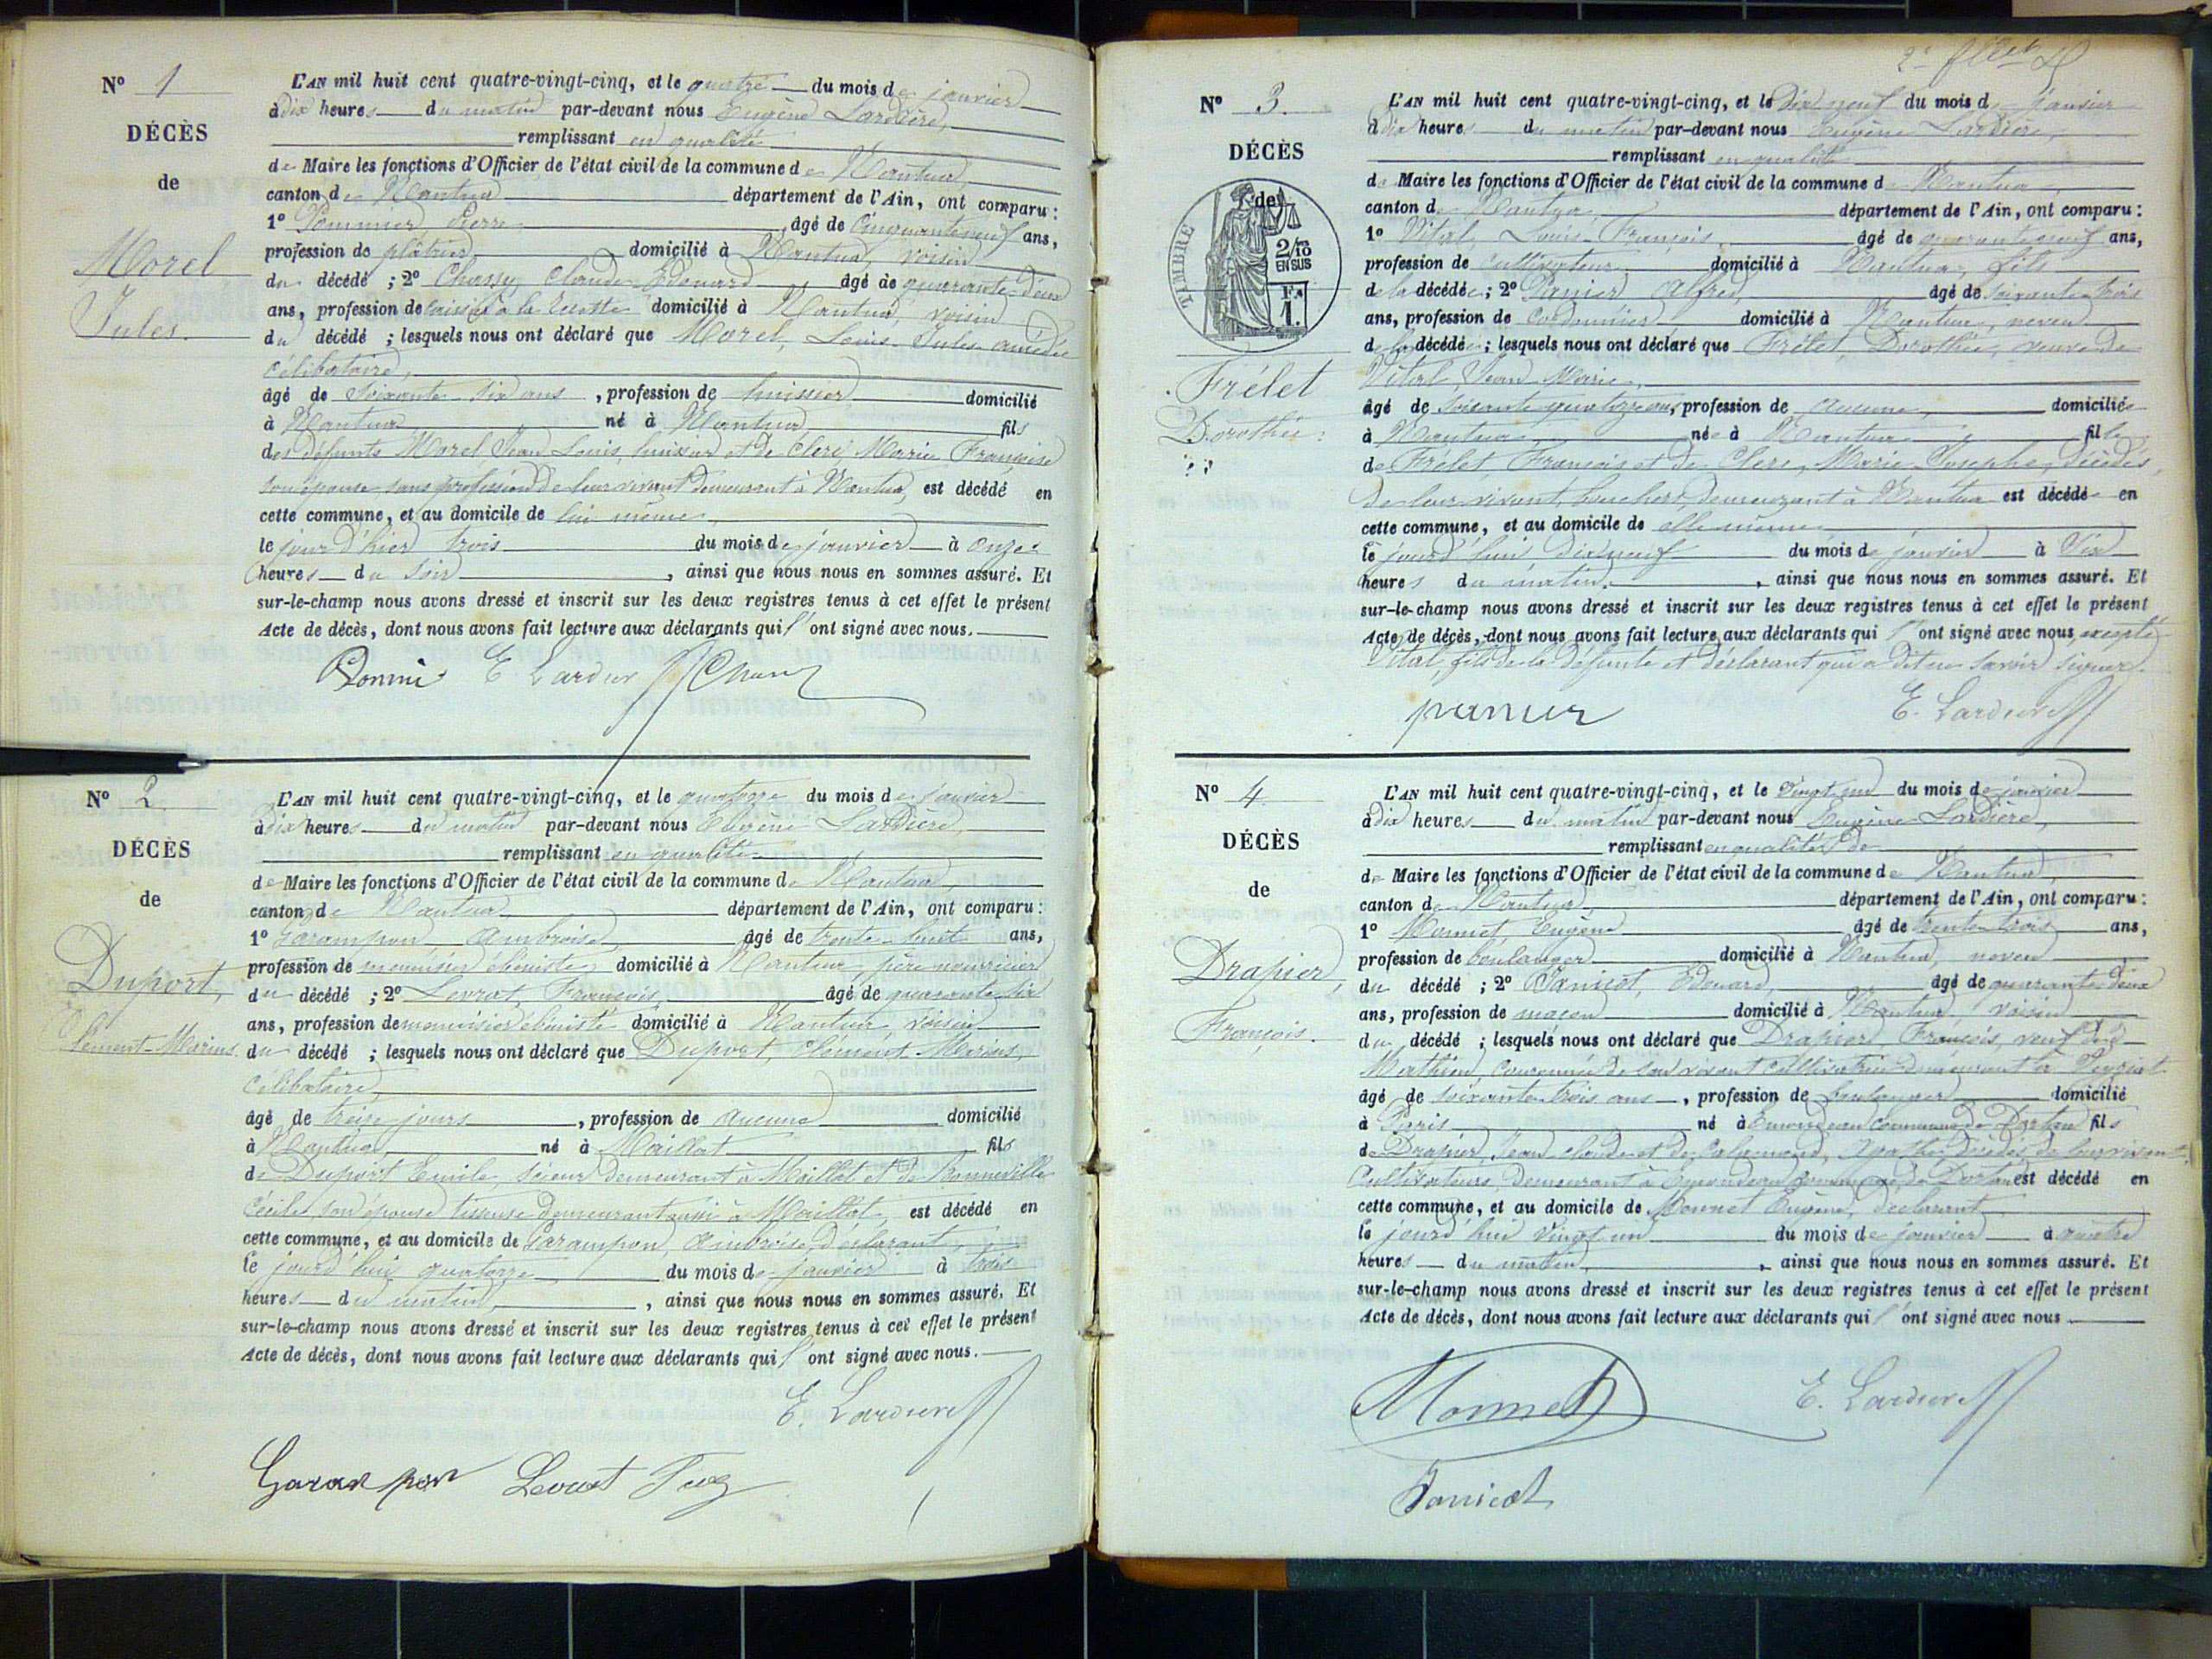 Nº 1
DÉCÈS
de
Morel
Jules.
L'AN mil huit cent quatre-vingt-cinq, et le quatre du mois de janvier
à dix heures du matin par-devant nous Eugène Lardière,
remplissant en qualité
de Maire les fonctions d'Officier de l'état civil de la commune de Nantua,
canton de Nantua département de l'Ain, ont comparu :
1º Pommier, Pierre âgé de Cinquante neuf ans,
profession de plâtrier domicilié à Nantua, voisin
du décédé ; 2º Chassy, Claude Edouard âgé de quarante-deux
ans, profession de caissier à la recette domicilié à Nantua, voisin
du décédé ; lesquels nous ont déclaré que Morel, Louis Jules amédée
Célibataire,
âgé de Soixante six ans, profession de huissier domicilié
à Nantua né à Nantua fils
des défunts Morel Jean Louis, huissier et de Clerc Marie Françoise
son épouse sans profession de leur vivant demeurant à Nantua, est décédé en
cette commune, et au domicile de lui même
le jour d'hier trois du mois de janvier à onze
heures du soir, ainsi que nous nous en sommes assuré. Et
sur-le-champ nous avons dressé et inscrit sur les deux registres tenus à cet effet le présent
Acte de décès, dont nous avons fait lecture aux déclarants qui l'ont signé avec nous.
E. Lardière
Nº 2.
DÉCÈS
de
Duport,
Clément-Marius
L'AN mil huit cent quatre-vingt-cinq, et le quatorze du mois de janvier
à dix heures du matin par-devant nous Eugène Lardière,
remplissant en qualité
de Maire les fonctions d'Officier de l'état civil de la commune de Nantua,
canton de Nantua département de l'Ain, ont comparu :
1º Garampon Ambroise âgé de trente-huit ans,
profession de menuisier ébéniste domicilié à Nantua, père nourricier
du décédé ; 2º Levrat, François, âgé de quarante six
ans, profession de menuisier ébéniste domicilié à Nantua voisin
du décédé ; lesquels nous ont déclaré que Duport, Clément Marius,
Célibataire,
âgé de treize jours, profession de aucune domicilié
à Nantua, né à Maillat fils
de Duport Emile, scieur demeurant à Maillat et de Bonneville
Cécile, son épouse tisseuse demeurant aussi à Maillat, est décédé en
cette commune, et au domicile de Garampon, Ambroise, déclarant
le jourd'hui quatorze du mois de janvier à trois
heures du matin, ainsi que nous nous en sommes assuré. Et
sur-le-champ nous avons dressé et inscrit sur les deux registres tenus à cet effet le présent
Acte de décès, dont nous avons fait lecture aux déclarants qui l'ont signé avec nous.
E. Lardière
Garampon Levrat
Nº 3.
DÉCÈS
de
TIMBRE
2/10 EN SUS
Fr. 1.
Frélet
Dorothée.
L'AN mil huit cent quatre-vingt-cinq, et le dix neuf du mois de janvier
à dix heures du matin par-devant nous Eugène Lardière,
remplissant en qualité
de Maire les fonctions d'Officier de l'état civil de la commune de Nantua,
canton de Nantua, département de l'Ain, ont comparu :
1º Vital, Louis-François âgé de quarante neuf ans,
profession de cultivateur domicilié à Nantua, fils
de la décédée ; 2º Panier Alfred, âgé de soixante trois
ans, profession de Cordonnier domicilié à Nantua, neveu
de la décédée ; lesquels nous ont déclaré que Frélet, Dorothée, veuve de
Vital, Jean Marie,
âgé de soixante quatorze ans, profession de aucune, domiciliée
à Nantua, née à Nantua fille
de Frélet François et de Clerc, Marie Josephe, décédés,
de leur vivant, bouchers, demeurant à Nantua est décédée en
cette commune, et au domicile de elle même
le jourd'hui dix neuf du mois de janvier à Six
heures du matin, ainsi que nous nous en sommes assuré. Et
sur-le-champ nous avons dressé et inscrit sur les deux registres tenus à cet effet le présent
Acte de décès, dont nous avons fait lecture aux déclarants qui l'ont signé avec nous, excepté
Vital, fils de la défunte et déclarant qui a dit ne savoir signer.
panier E. Lardière
Nº 4.
DÉCÈS
de
Drapier,
François.
L'AN mil huit cent quatre-vingt-cinq, et le vingt un du mois de janvier
à dix heures du matin par-devant nous Eugène Lardière,
remplissant en qualité de
de Maire les fonctions d'Officier de l'état civil de la commune de Nantua,
canton de Nantua département de l'Ain, ont comparu :
1º Monnet Eugène âgé de trente trois ans,
profession de boulanger domicilié à Nantua, neveu
du décédé ; 2º Janicot, Edouard, âgé de quarante deux
ans, profession de maçon domicilié à Nantua, voisin
du décédé ; lesquels nous ont déclaré que Drapier, François, veuf de
de son vivant cultivatrice demeurant à
âgé de soixante trois ans, profession de boulanger domicilié
à Paris né à Emondeau commune de Dortan fils
de Drapier, Jean Claude et de décédés de leur vivant
Cultivateurs, demeurant à Emondeau commune de Dortan est décédé en
cette commune, et au domicile de Monnet Eugène, déclarant
le jourd'hui vingt un du mois de janvier à quatre
heures du matin, ainsi que nous nous en sommes assuré. Et
sur-le-champ nous avons dressé et inscrit sur les deux registres tenus à cet effet le présent
Acte de décès, dont nous avons fait lecture aux déclarants qui l'ont signé avec nous
Monnet E. Lardière
Janicot